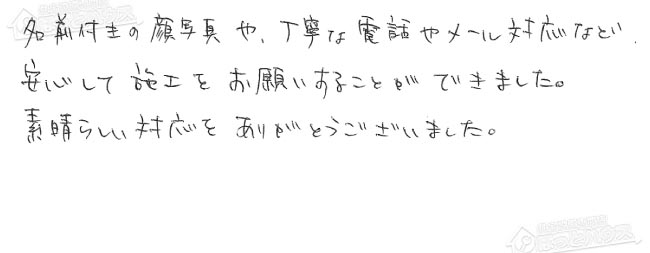 名前付きの顔写真や、丁寧な電話やメール対応など、
安心して施工をお願いすることができました。
素晴らしい対応をありがとうございました。